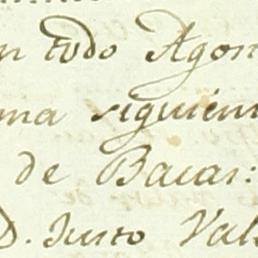 n todo Agon
ma siguien
de Bacas:
D. Justo Val